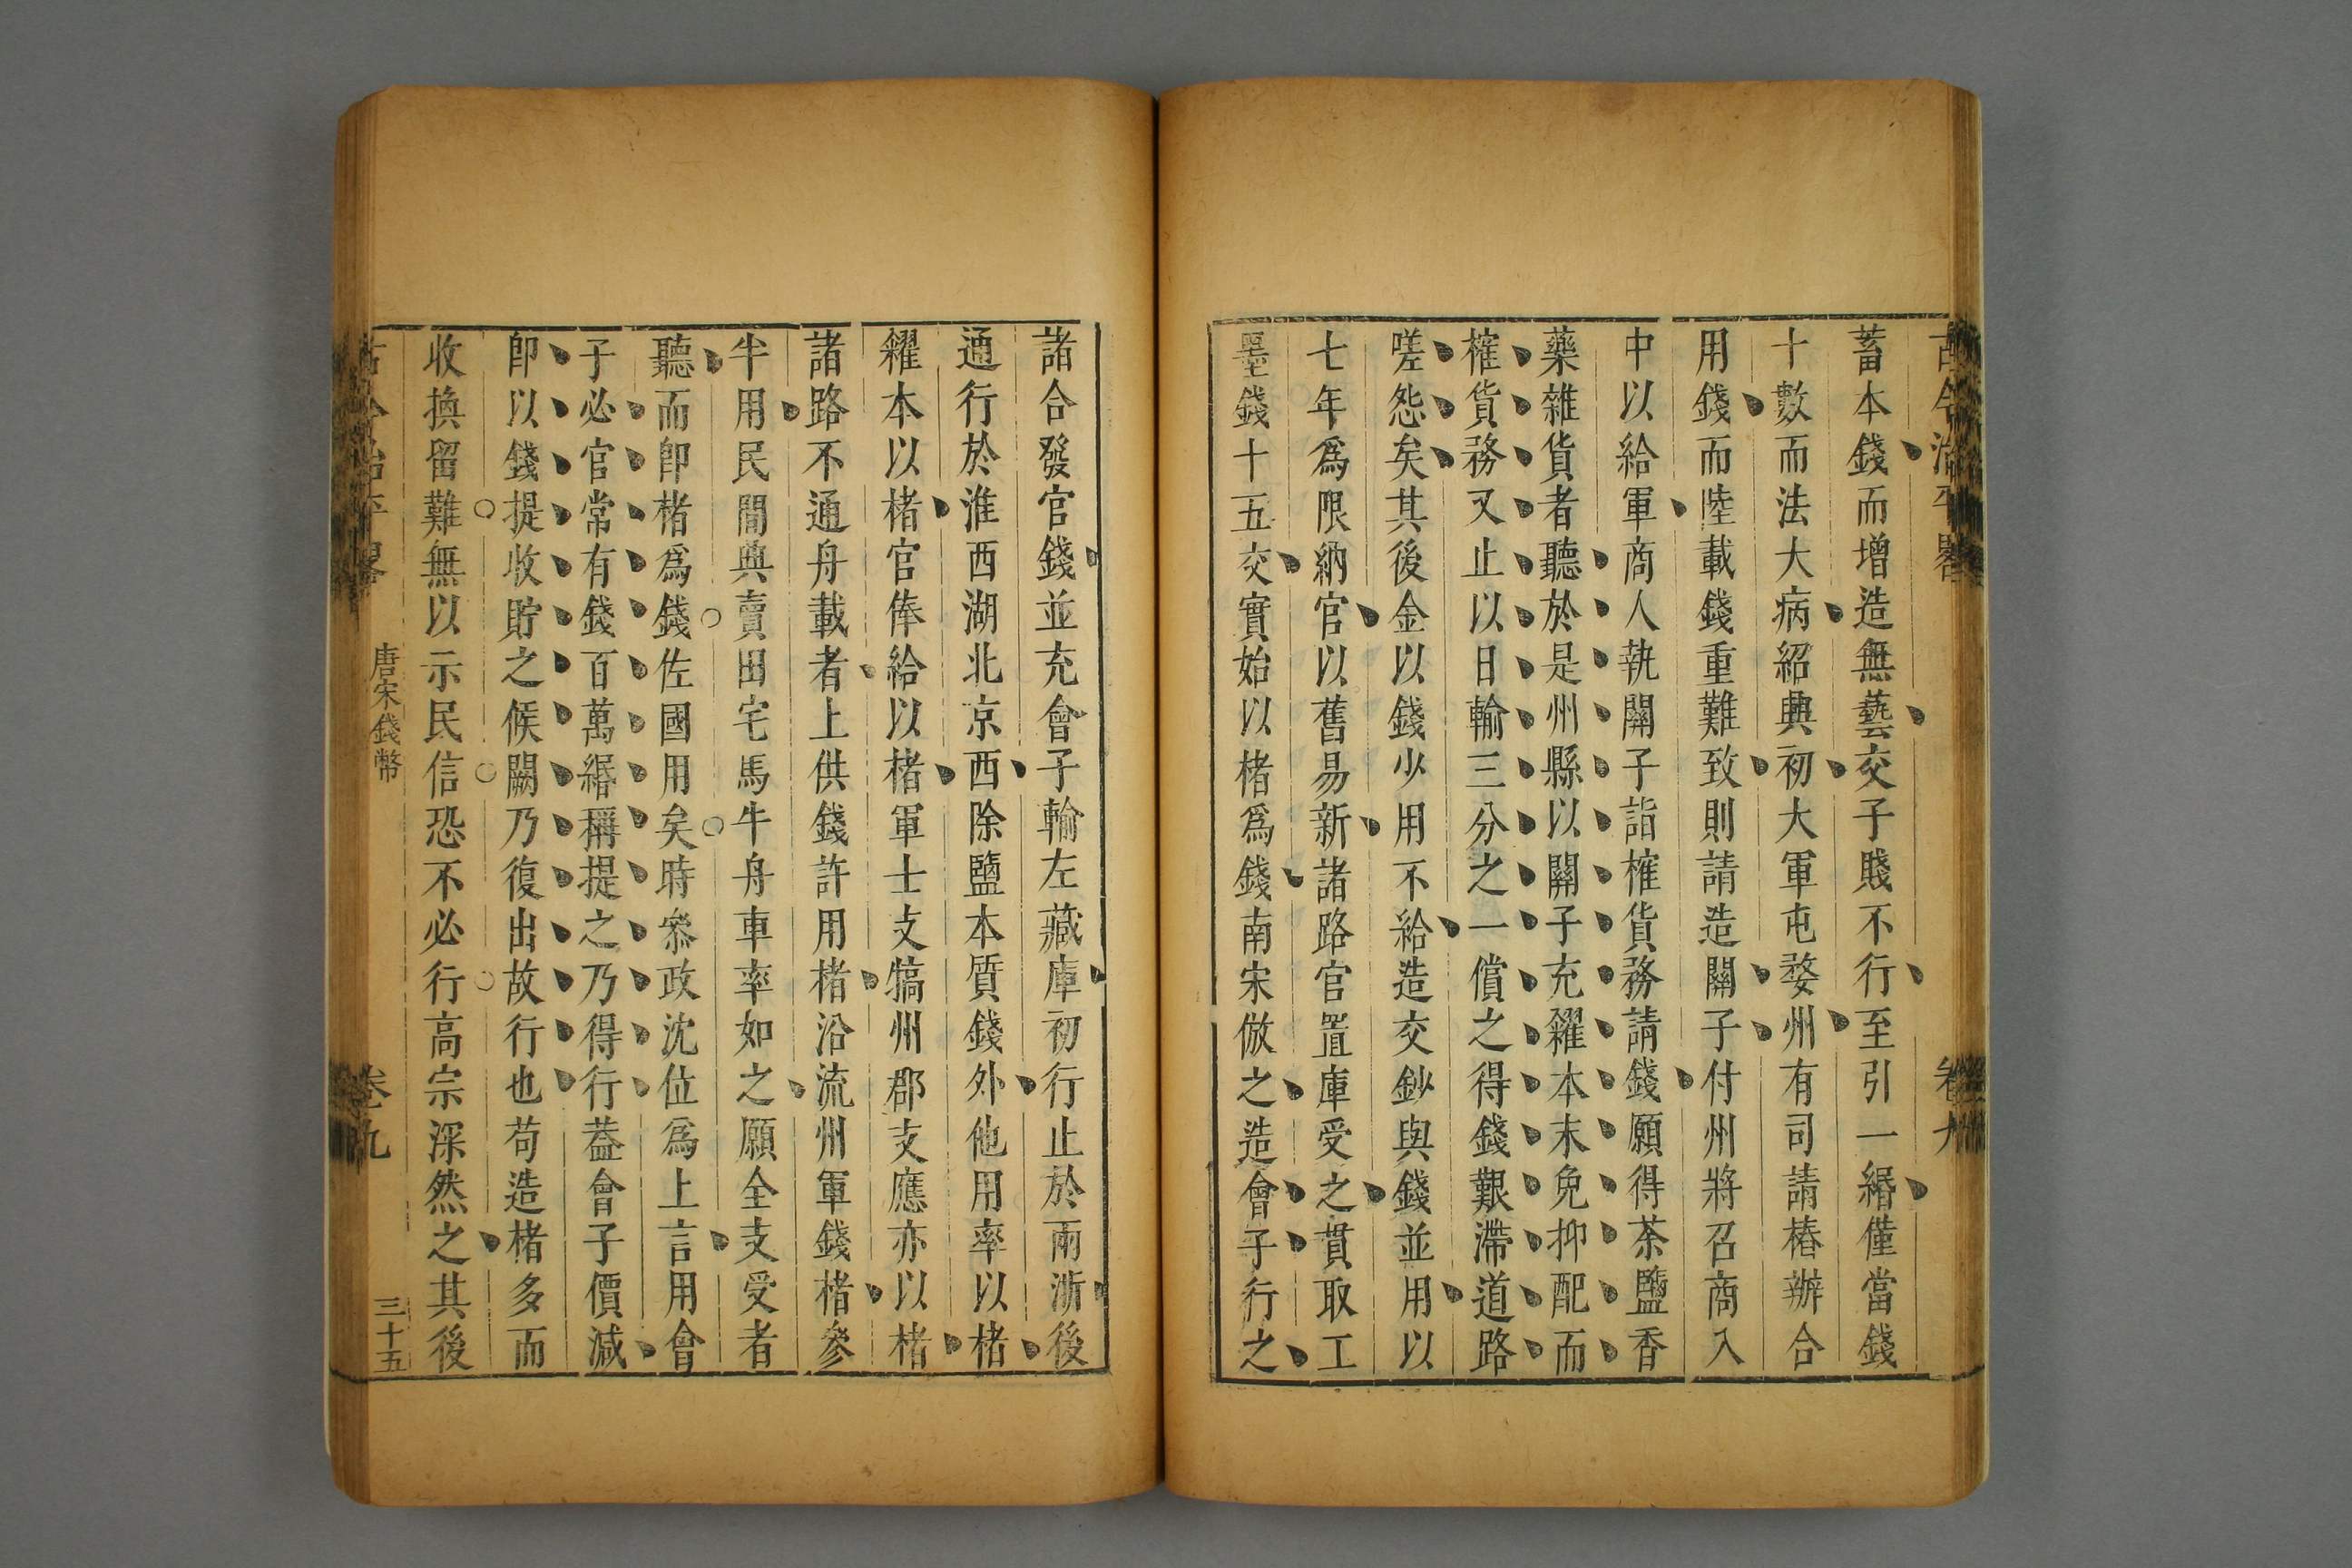 古今治平畧
卷九
蓄本錢而增造無藝交子賤不行至引一緡僅當錢
十數而法大病紹興初大軍屯婺州有司請樁辦合
用錢而陸載錢重難致則請造關子付州將召商入
中以給軍商人執關子詣榷貨務請錢願得茶鹽香
藥雜貨者聽於是州縣以關子充糴本末免抑配而
榷貨務又止以日輸三分之一償之得錢艱滯道路
嗟怨矣其後金以錢少用不給造交鈔與錢並用以
七年爲限納官以舊易新諸路官置庫受之貫取工
墨錢十五交實始以楮爲錢南宋倣之造會子行之
諸合發官錢並充會子輸左藏庫初行止於兩浙後
通行於淮西湖北京西除鹽本質錢外他用率以楮
糴本以楮官俸給以楮軍士支犒州郡支應亦以楮
諸路不通舟載者上供錢許用楮沿流州軍錢楮參
半用民間典賣田宅馬牛舟車率如之願全支受者
聽而卽楮爲錢佐國用矣時叅政沈位爲上言用會
子必官常有錢百萬緡稱提之乃得行葢會子價減
卽以錢提收貯之候闕乃復出故行也苟造楮多而
收換留難無以示民信恐不必行高宗深然之其後
古今治平畧
唐宋錢幣
卷九
三十五